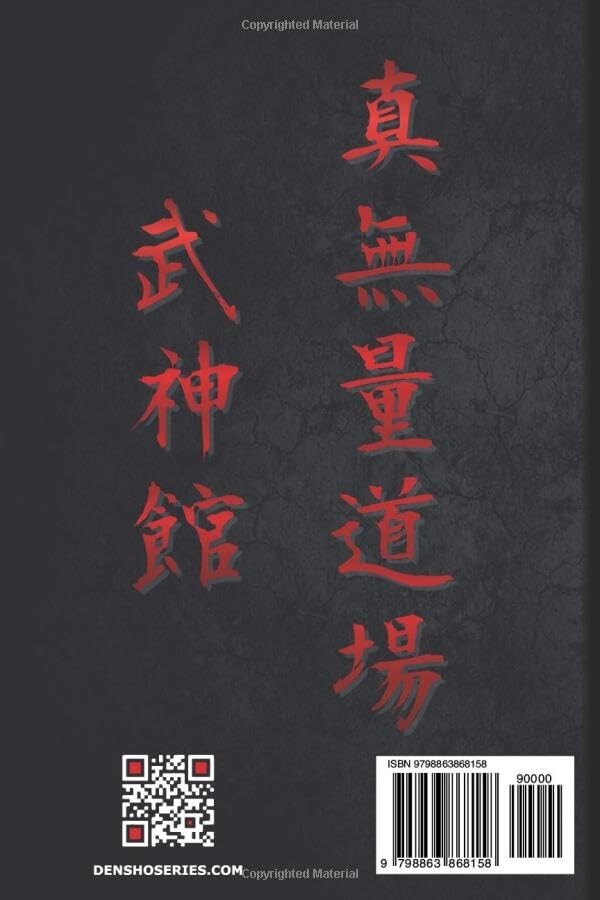 Copyrighted Material
真無量道場
武神館
ISBN 9798863868158
90000
9 798863 868158
DENSHOSERIES.COM
Copyrighted Material